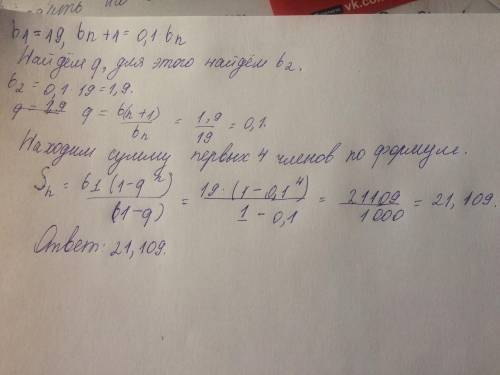 b1 = 19, bn+1 = 0,1 · bn
Найдём q, для этого найдём b2.
b2 = 0,1 · 19 = 1,9.
q = 1,9 q = b(n+1)/bn = 1,9/19 = 0,1.
Находим сумму первых 4 членов по формуле.
Sn = b1(1-q^n)/(1-q) = 19·(1-0,1^4)/1-0,1 = 21109/1000 = 21,109.
Ответ: 21,109.
vk.com